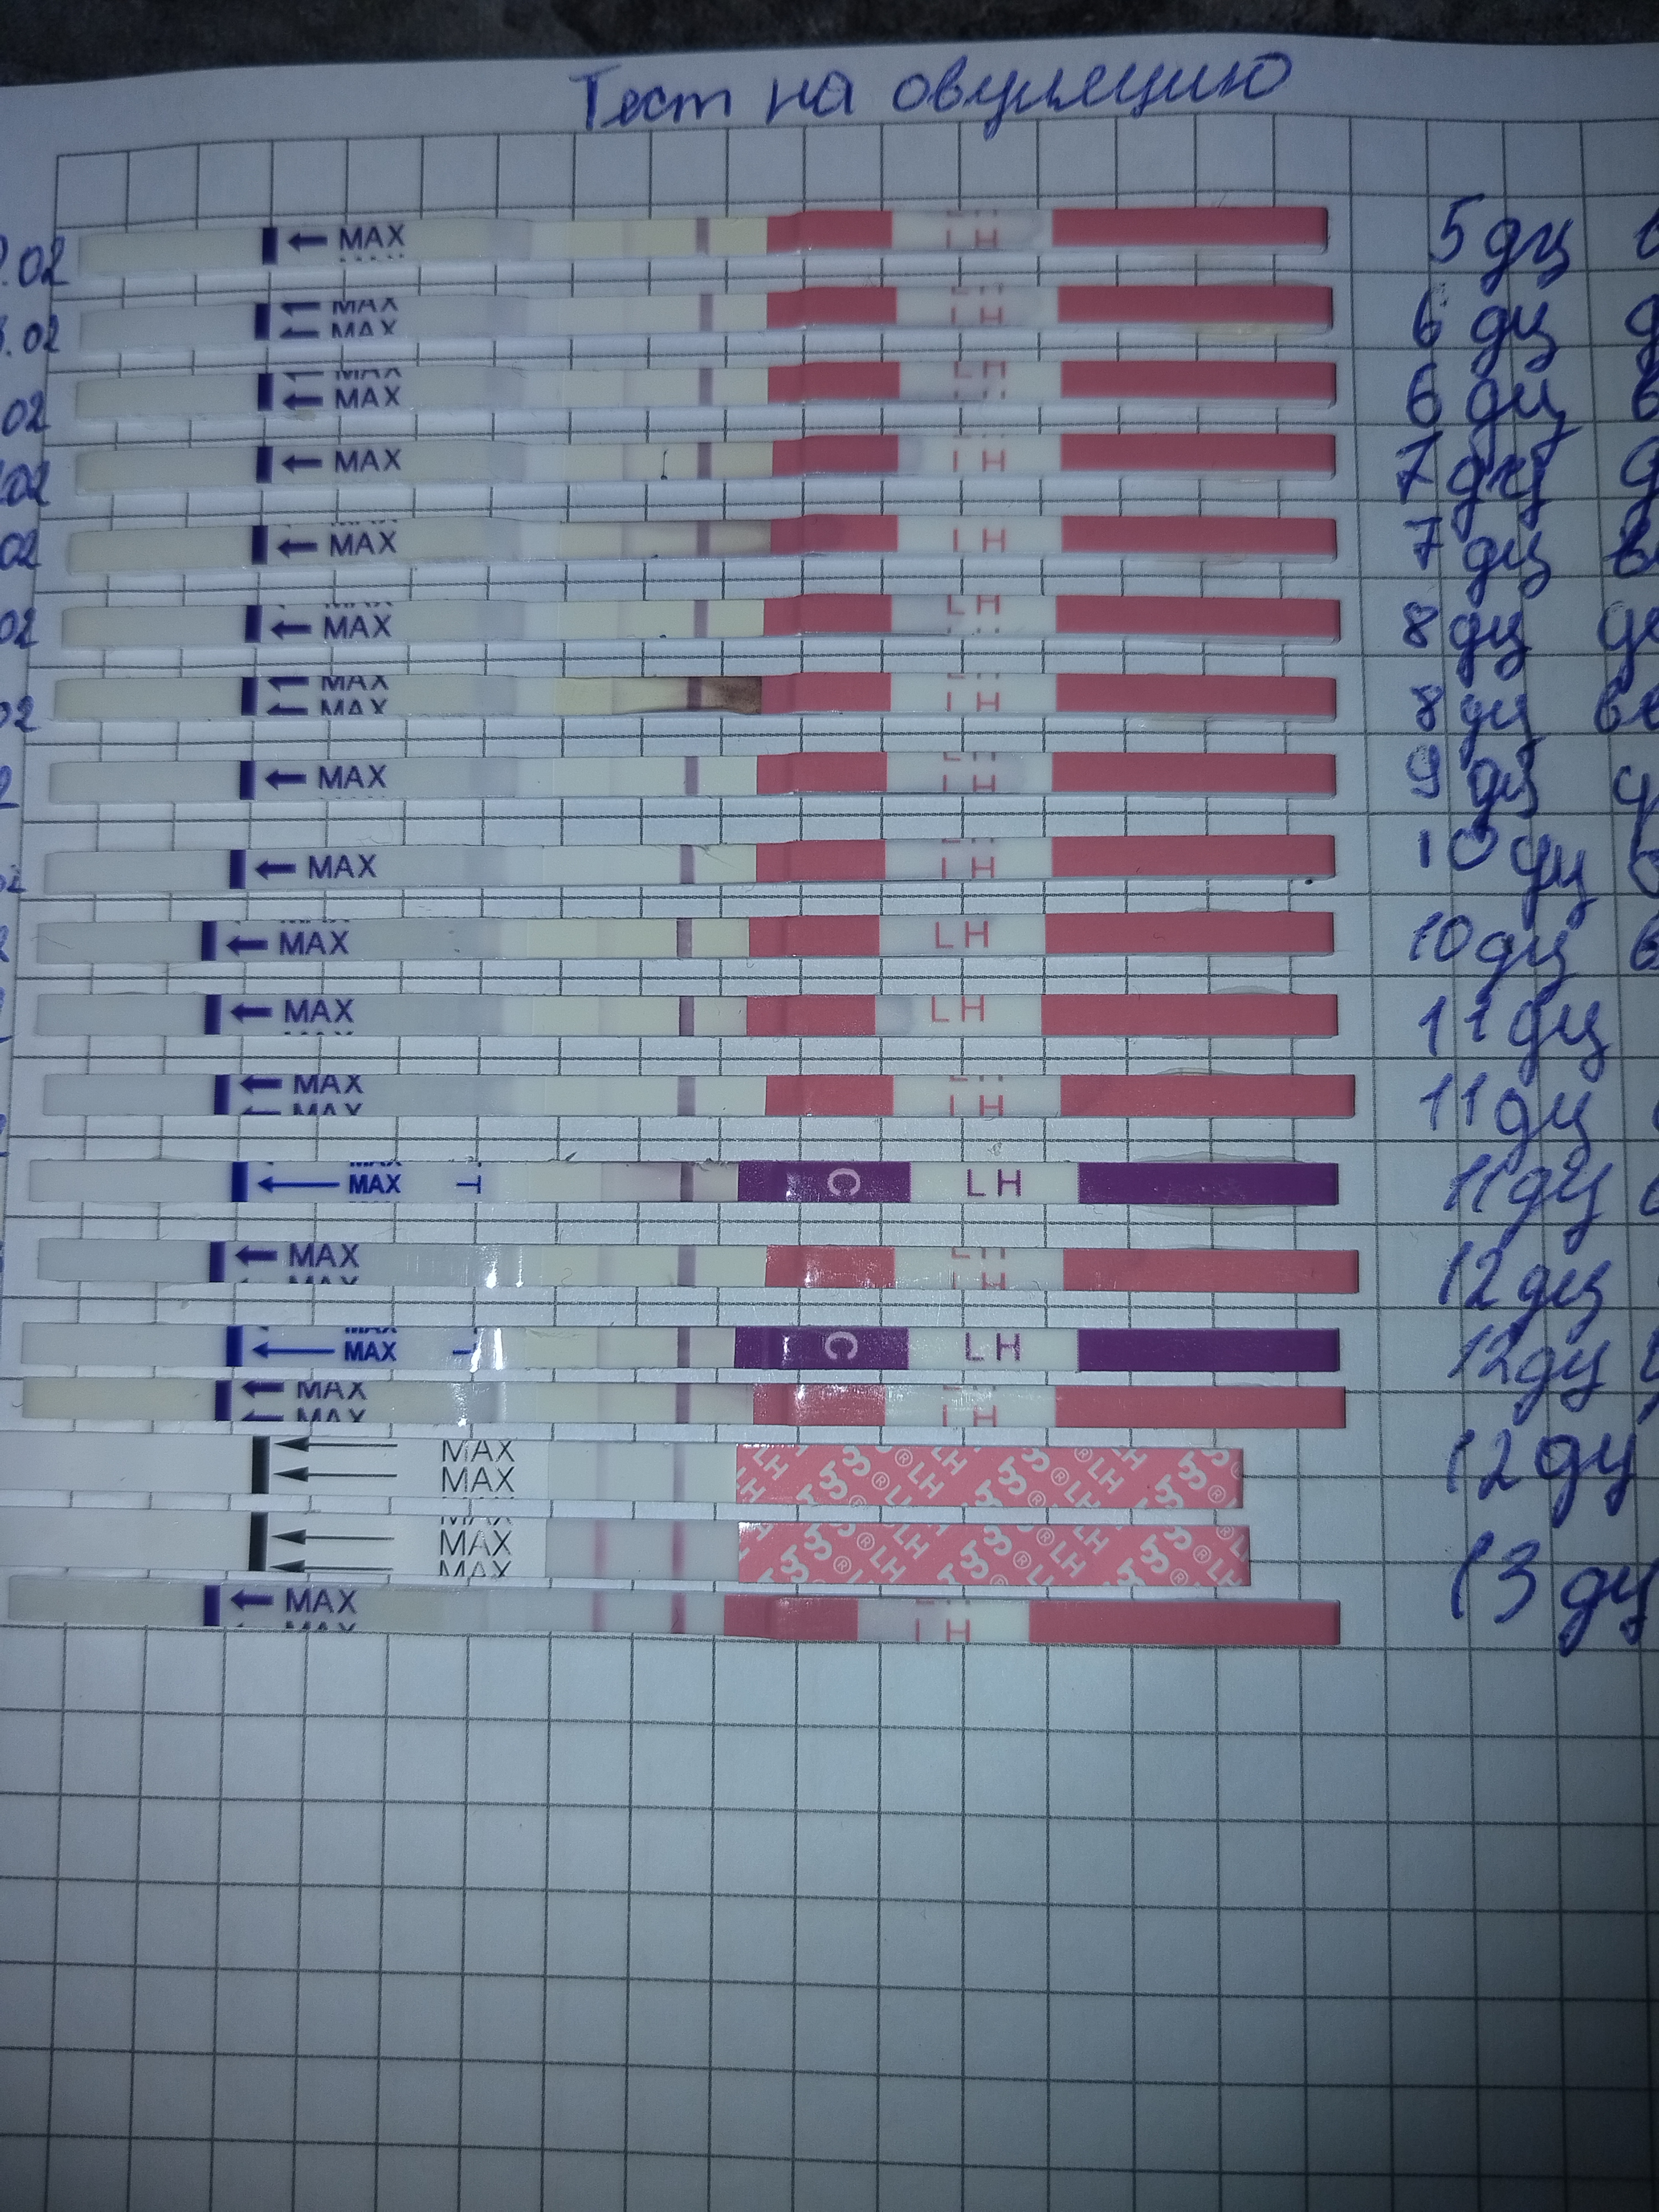 Тест на овуляцию
.02 MAX LH 5 дц
.02 MAX MAX LH 6 дц
02 MAX MAX LH 6 дц
.02 MAX LH 7 дц
02 MAX LH 7 дц
02 MAX LH 8 дц
02 MAX MAX LH 8 дц
2 MAX LH 9 дц
02 MAX LH 10 дц
MAX LH 10 дц
MAX LH 11 дц
MAX MAX LH 11 дц
MAX T C LH 11 дц
MAX MAX LH 12 дц
MAX MAX T C LH 12 дц
MAX MAX LH
MAX MAX LH ® LH ® LH ® LH ® 12 дц
MAX MAX MAX LH ® LH ® LH ® LH ® 13 дц
MAX MAX LH